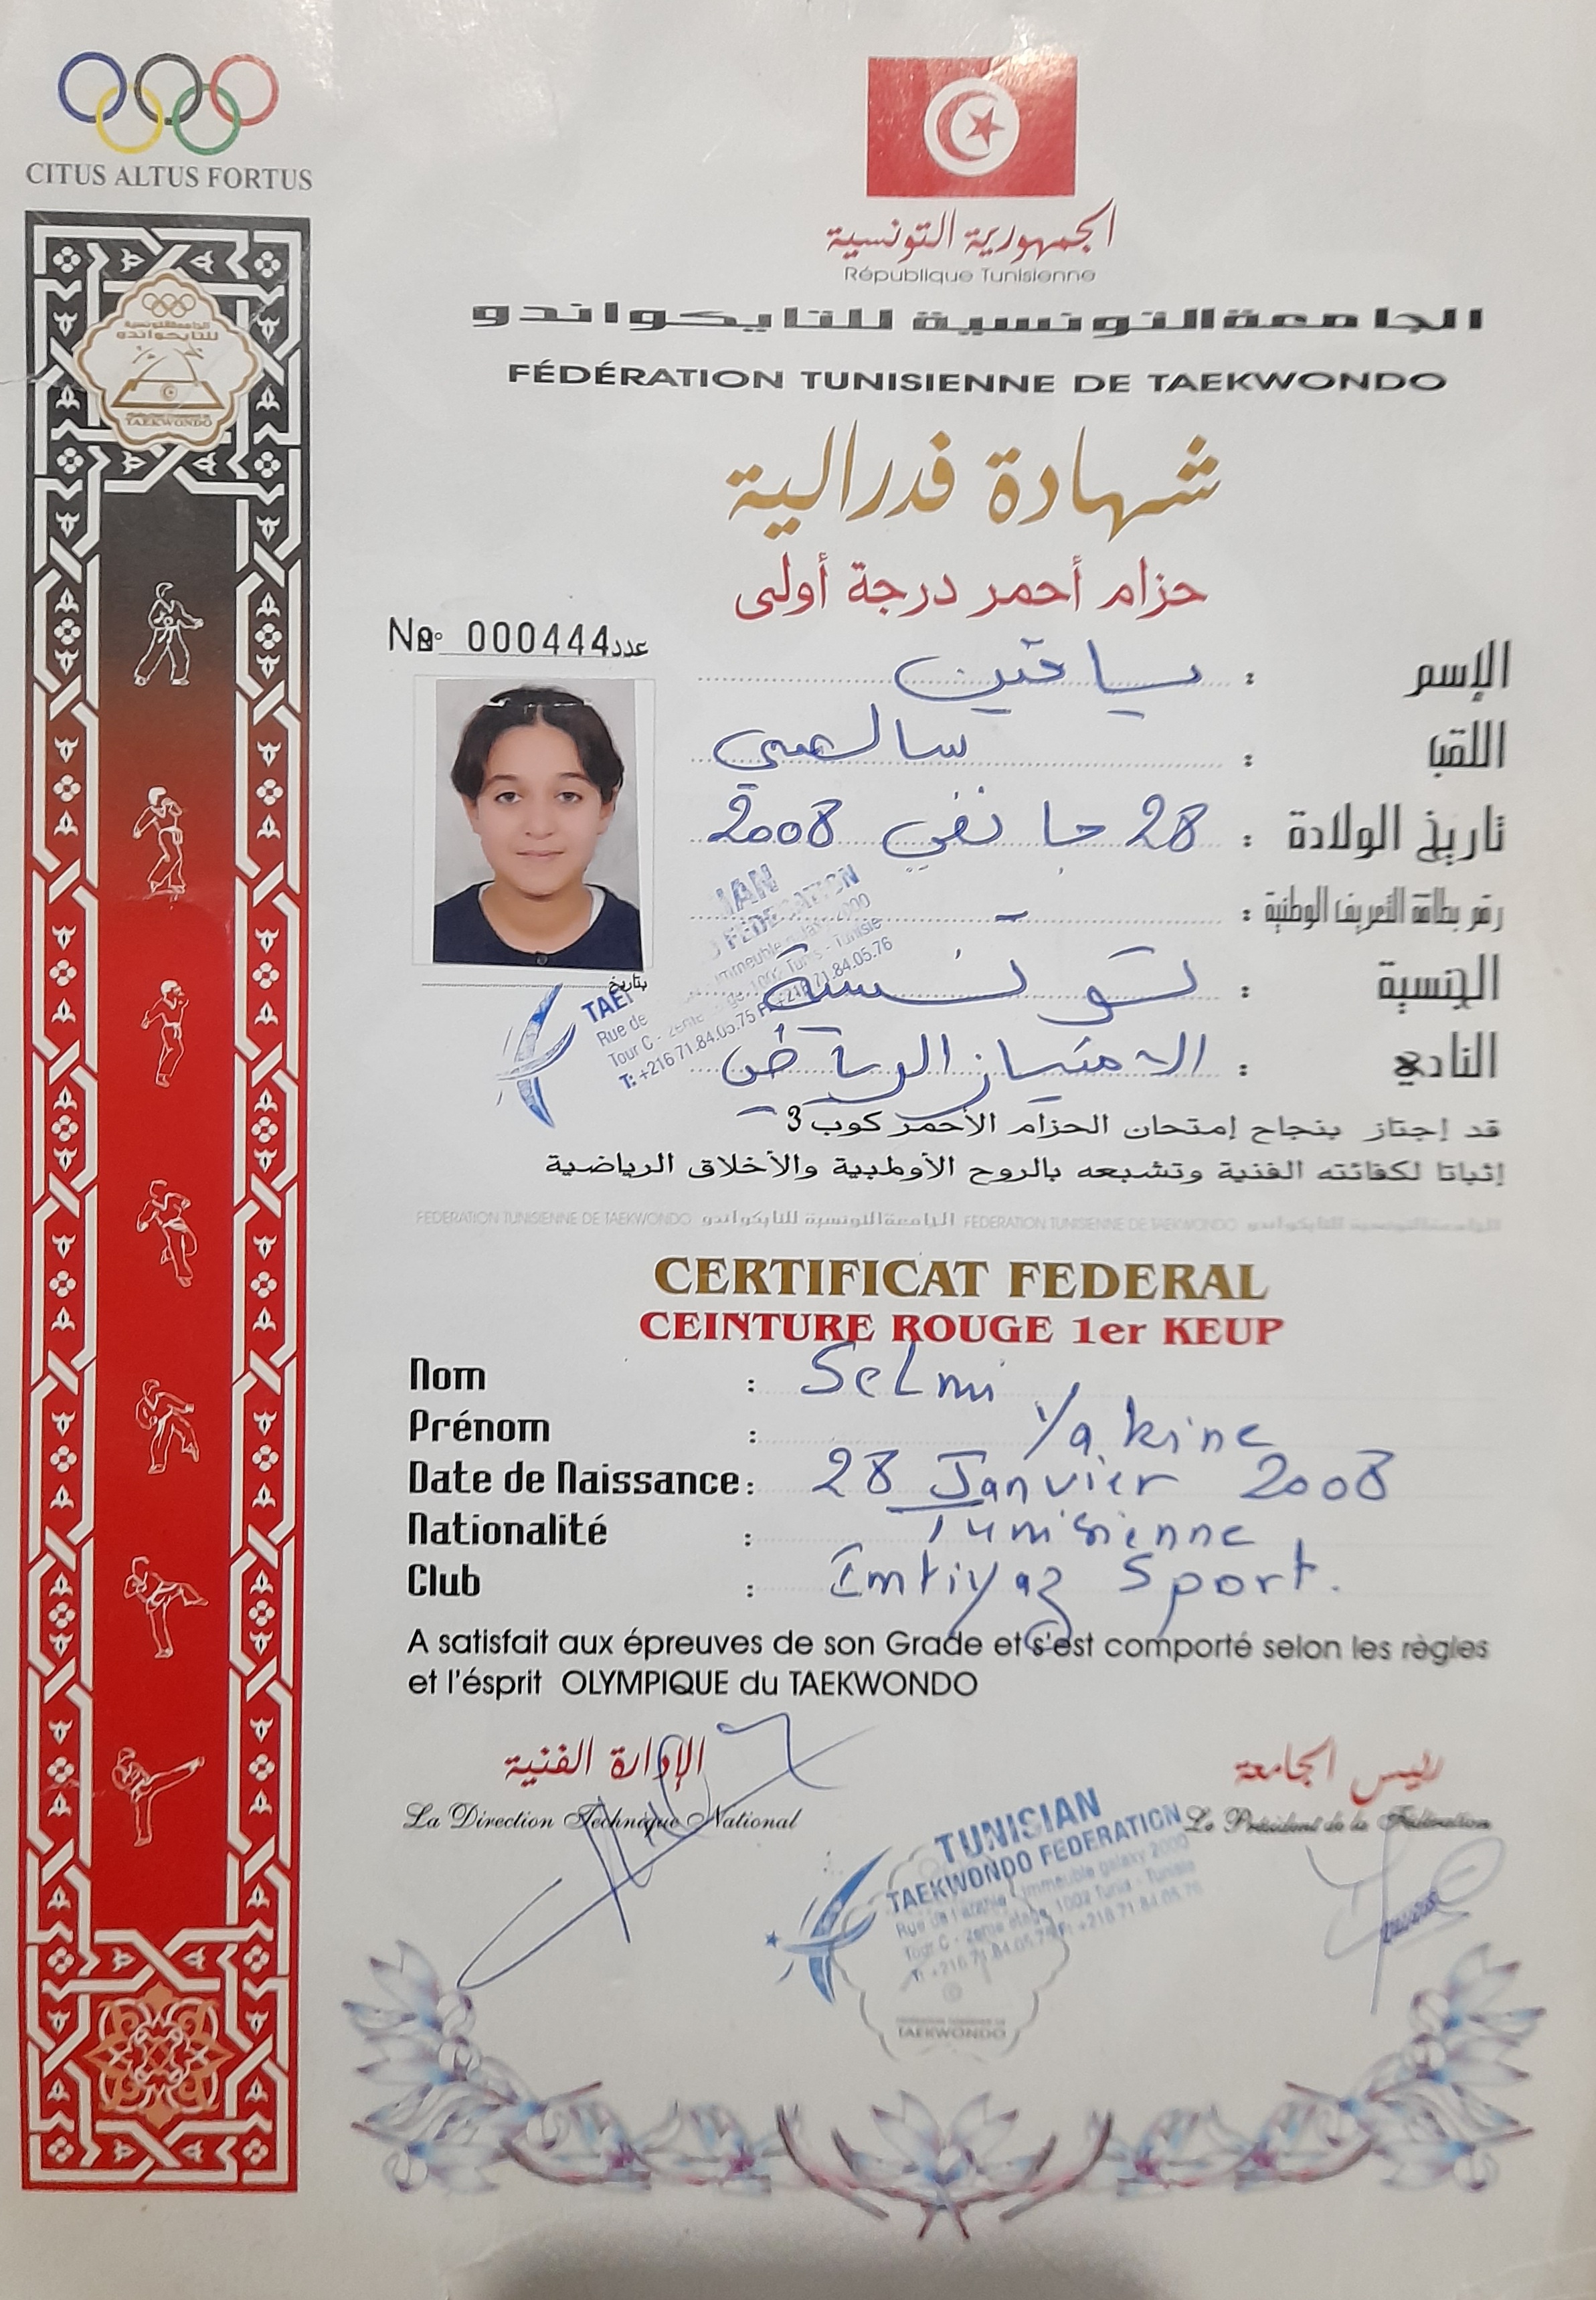 CITUS ALTUS FORTUS
الجمهورية التونسية
République Tunisienne
الجامعة التونسية للتايكواندو
FÉDÉRATION TUNISIENNE DE TAEKWONDO
الجامعة التونسية
للتايكواندو
TAEKWONDO
شهادة فدرالية
حزام أحمر درجة أولى
No 000444 عدد
الإسم : ياقين
اللقب : سالمي
تاريخ الولادة : 28 جانفي 2008
رقم بطاقة التعريف الوطنية : -
الجنسية : تونسية
النادي : الامتياز الرياضي
بتاريخ
قد إجتاز بنجاح إمتحان الحزام الأحمر كوب 3
إثباتا لكفائته الفنية وتشبعه بالروح الأولمبية والأخلاق الرياضية
FEDERATION TUNISIENNE DE TAEKWONDO الجامعة التونسية للتايكواندو FEDERATION TUNISIENNE DE TAEKWONDO الجامعة التونسية للتايكواندو
CERTIFICAT FEDERAL
CEINTURE ROUGE 1er KEUP
Nom : Selmi
Prénom : Yakine
Date de Naissance : 28 Janvier 2008
Nationalité : Tunisienne
Club : Imtiyaz Sport.
A satisfait aux épreuves de son Grade et s'est comporté selon les règles
et l'ésprit OLYMPIQUE du TAEKWONDO
الإدارة الفنية
La Direction Technique National
رئيس الجامعة
Le Président de la Fédération
TUNISIAN
TAEKWONDO FEDERATION
immeuble galaxy 2000
Tour C - 2ème étage, 1002 Tunis - Tunisie
T: +216 71.84.05.75 F: +216 71.84.05.76
TAEKWONDO